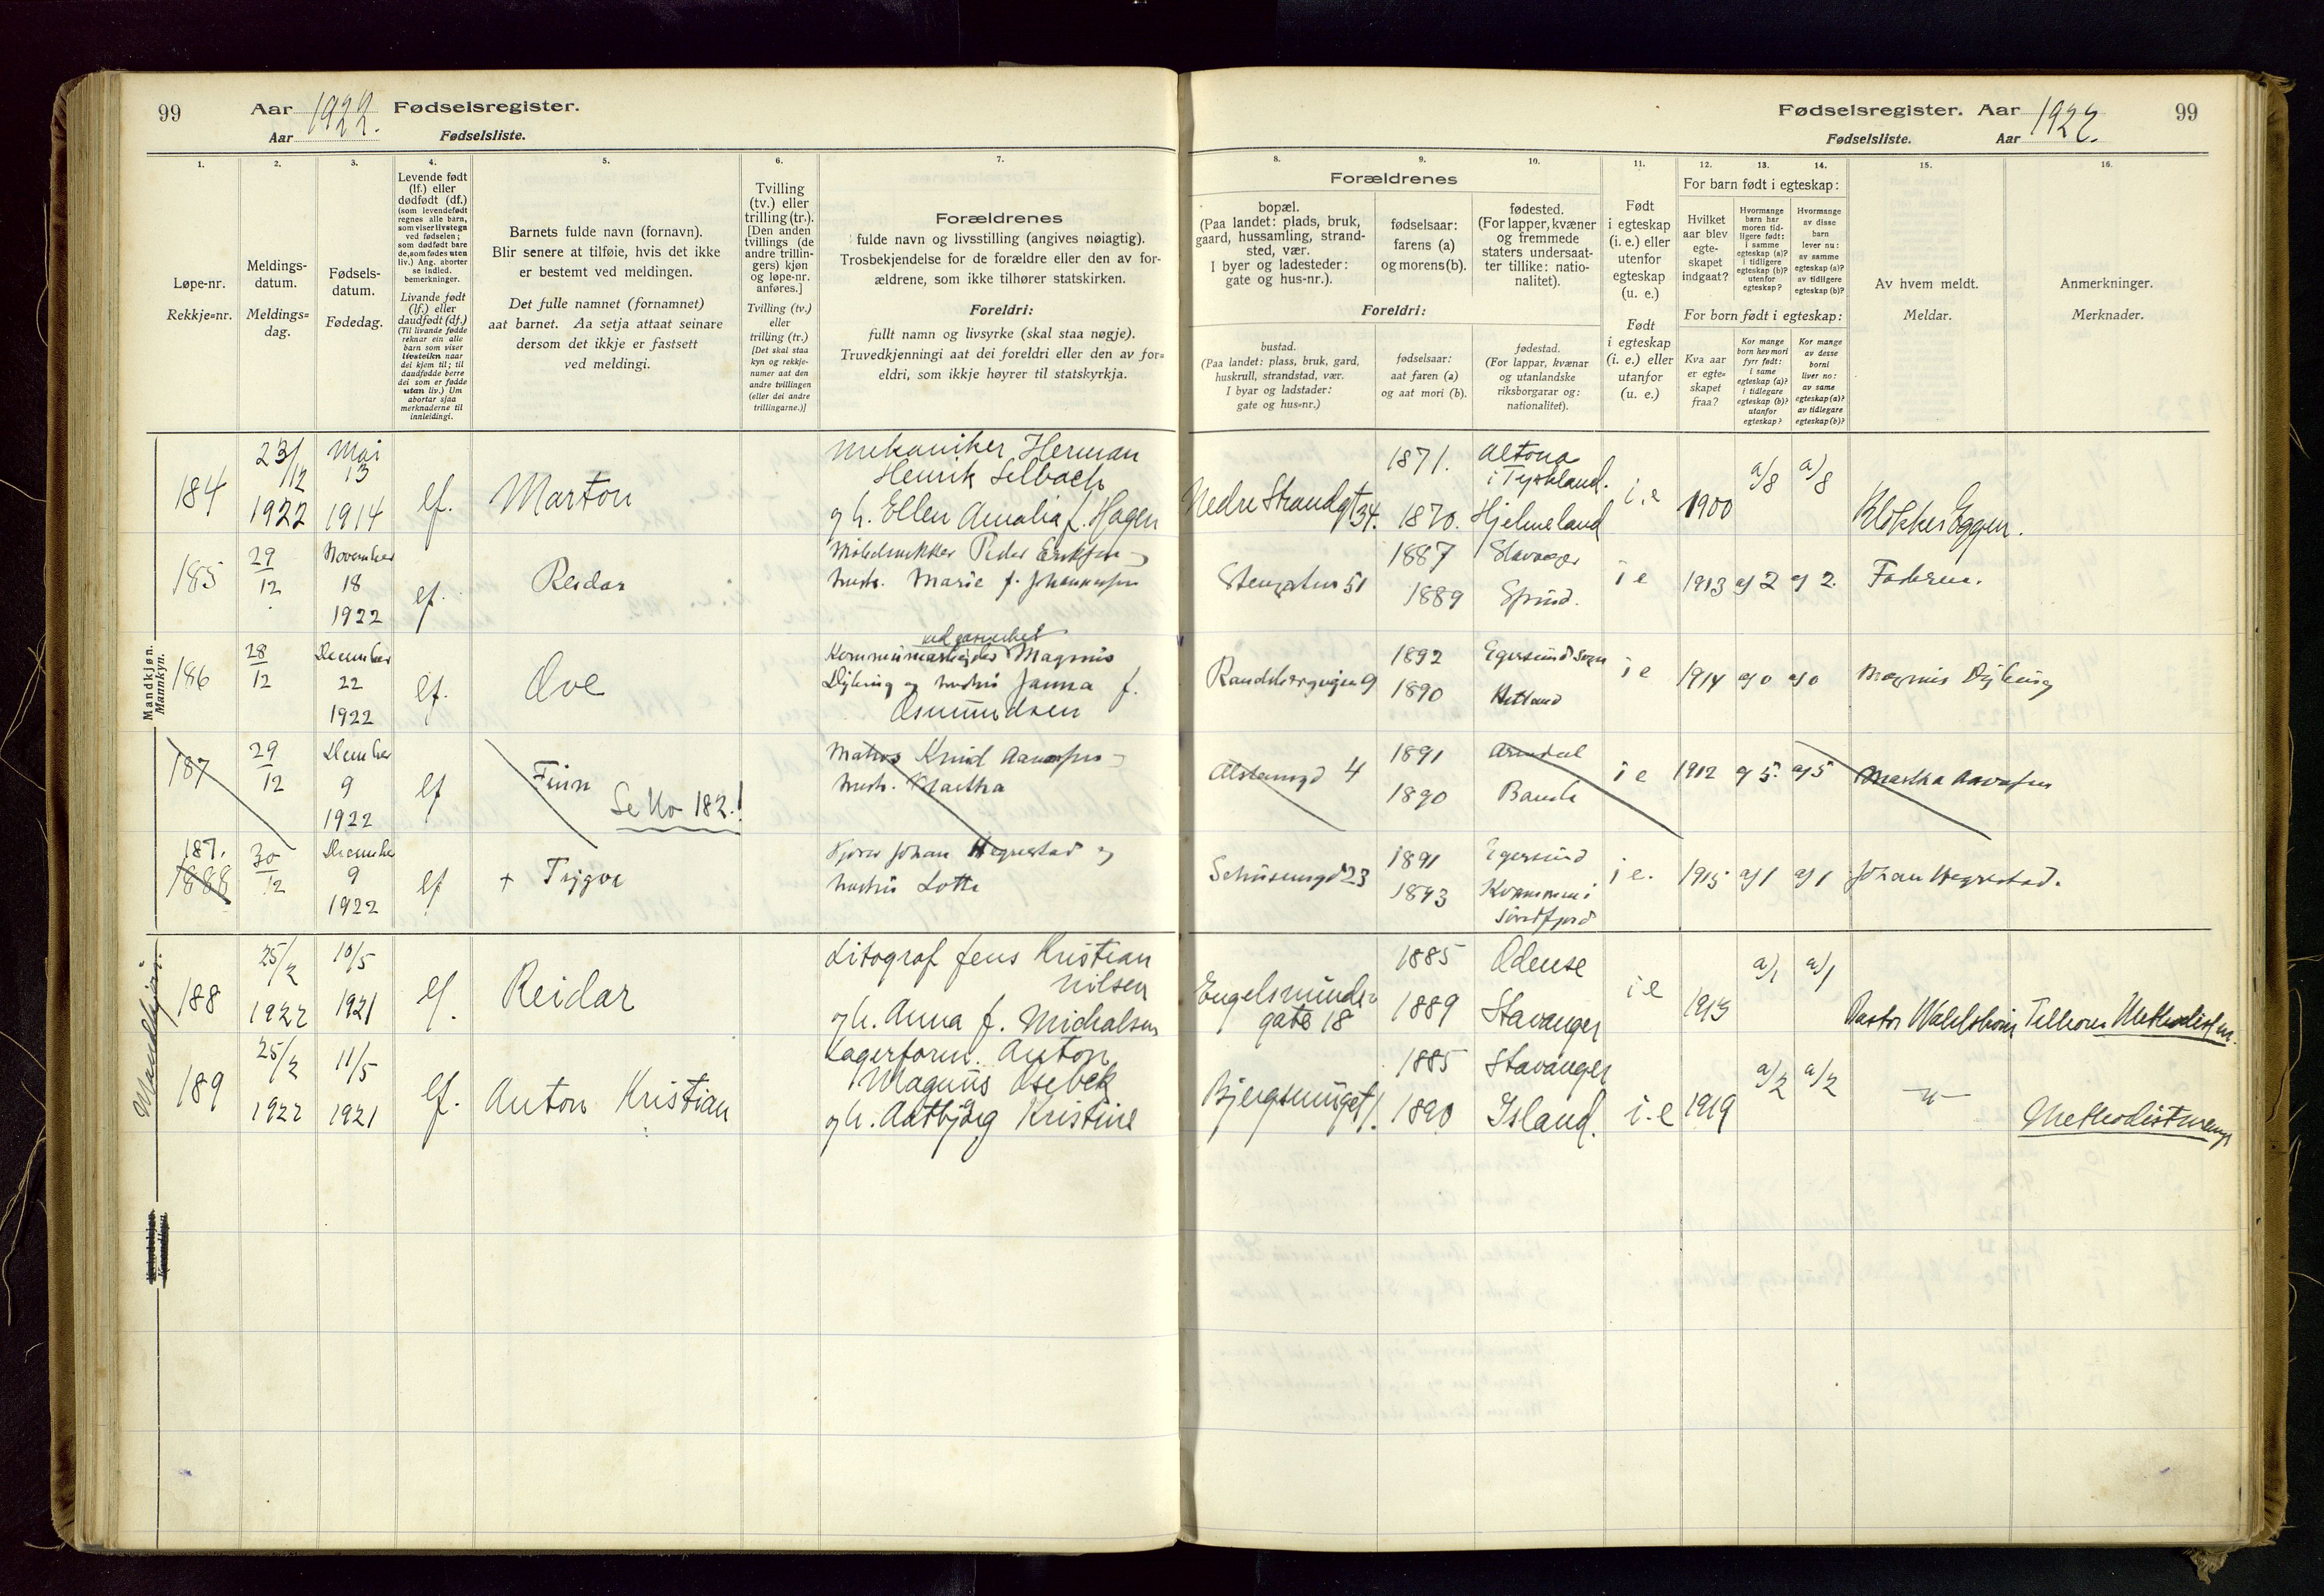 99 Aar 1922. Fødselsregister.
Aar Fødselsliste.
Fødselsregister. Aar 1922. 99
Fødselsliste. Aar
1. 2. 3. 4. 5. 6. 7.
8. 9. 10. 11. 12. 13. 14. 15. 16.
Løpe-nr.
Rekkje=nr.
Meldings-
datum.
Meldings=
dag.
Fødsels-
datum.
Fødedag.
Levende født
(lf.) eller
dødfødt (df.)
(som levendefødt
regnes alle barn,
som viser livstegn
ved fødselen;
som dødfødt bare
de, som fødes uten
liv.) Ang. aborter
se indled.
bemerkninger.
Livande født
(lf.) eller
daudfødt (df.)
(Til livande fødde
reknar ein alle
barn som viser
livsteikn naar
dei kjem til; til
daudfødde berre
dei som er fødde
utan liv.) Um
abortar sjaa
merknaderne til
innleidingi.
Barnets fulde navn (fornavn).
Blir senere at tilføie, hvis det ikke
er bestemt ved meldingen.
Det fulle namnet (fornamnet)
aat barnet. Aa setja attaat seinare
dersom det ikkje er fastsett
ved meldingi.
Tvilling
(tv.) eller
trilling (tr.).
[Den anden
tvillings (de
andre trillin-
gers) kjøn
og løpe-nr.
anføres.]
Tvilling (tv.)
eller
trilling (tr.)
[Det skal staa
kyn og rekkje-
numer aat den
andre tvillingen
(eller dei andre
trillingarne.)]
Forældrenes
fulde navn og livsstilling (angives nøiagtig).
Trosbekjendelse for de forældre eller den av for-
ældrene, som ikke tilhører statskirken.
Foreldri:
fullt namn og livsyrke (skal staa nøgje).
Truvedkjenningi aat dei foreldri eller den av for=
eldri, som ikkje høyrer til statskyrkja.
Forældrenes
bopæl.
(Paa landet: plads, bruk,
gaard, hussamling, strand-
sted, vær.
I byer og ladesteder:
gate og hus-nr.).
fødselsaar:
farens (a)
og morens (b).
fødested.
(For lapper, kvæner
og fremmede
staters undersaat-
ter tillike: natio-
nalitet).
Foreldri:
bustad.
(Paa landet: plass, bruk, gard,
huskrull, strandstad, vær.
I byar og ladstader:
gate og hus=nr.)
fødselsaar:
aat faren (a)
og aat mori (b).
fødestad.
(For lappar, kvænar
og utanlandske
riksborgarar og:
nationalitet).
Født
i egteskap
(i. e.) eller
utenfor
egteskap
(u. e.)
Født
i egteskap
(i. e.) eller
utanfor
(u. e.)
For barn født i egteskap:
Hvilket
aar blev
egte-
skapet
indgaat?
Hvormange
barn har
moren tid-
ligere født:
i samme
egteskap (a)?
i tidligere
egteskap (b)?
utenfor
egteskap?
Hvormange
av disse
barn
lever nu:
av samme
egteskap (a)?
av tidligere
egteskap (b)?
For born født i egteskap:
Kva aar
er egte=
skapet
fraa?
Kor mange
born hev mori
fyrr født:
i same
egteskap (a)?
i tidlegare
egteskap (b)?
utanfor
egteskap?
Kor mange
av desse
borni
liver no:
av same
egteskap (a)?
av tidlegare
egteskap (b)?
Av hvem meldt.
Meldar.
Anmerkninger.
Merknader.
Mandkjøn.
Mannkyn.
184 23/12 1922 Mai 13 1914 lf. Marton
Mekaniker Herman
Henrik Selbach
og h. Ellen Amalia f. Hagen
Nedre Strandgt 34. 1871. Altona
i Tyskland.
1870. Hjelmeland i.e 1900 a/8 a/8 Klokker Eggen.
185 29/12 November 18 1922 lf. Reidar
Peder
hustr. Marie f. Johannessen
51 1887 Stavanger
1889 Spind. i e 1913 a/2 a/2. Faderen.
186 28/12 December 22 1922 lf. Ove
ved gasverket
Kommunearbeider Magnus
Dybing og hustru Janna f.
Osmundsen
9 1892 Egersund sogn
1890 Hetland i e 1914 a/0 a/0 Magnus Dybing
187 29/12 December 9 1922 lf Finn
Se No 182.!
Matros Knud
hustr. Martha
4 1891 Arendal
1890 i e 1912 a/5. a/5 Martha
187.
1888 30/12 December 9 1922 lf + Trygve
Johan Hegrestad og
hustru Lotte
23 1891 Egersund
1893
Søndfjord
i e. 1915 a/1 a/1 Johan Hegrestad.
Mandkjøn.
188 25/2 1922 10/5 1921 lf. Reidar
Litograf Jens Kristian
Nilsen
og h. Anna f. Michalsen
Engelsminde-
gate 18 1885 Odense
1889 Stavanger i e 1913 a/1 a/1
Pastor Wahlstrøm Tilhører Methodistm.
189 25/2 1922 11/5 1921 lf. Anton Kristian
Lagerform. Anton
Magnus Osebek
og h. Astbjørg Kristine
1. 1885 Stavanger
1890 Island. i.e 1919 a/2 a/2 -"-
Methodistmenigh